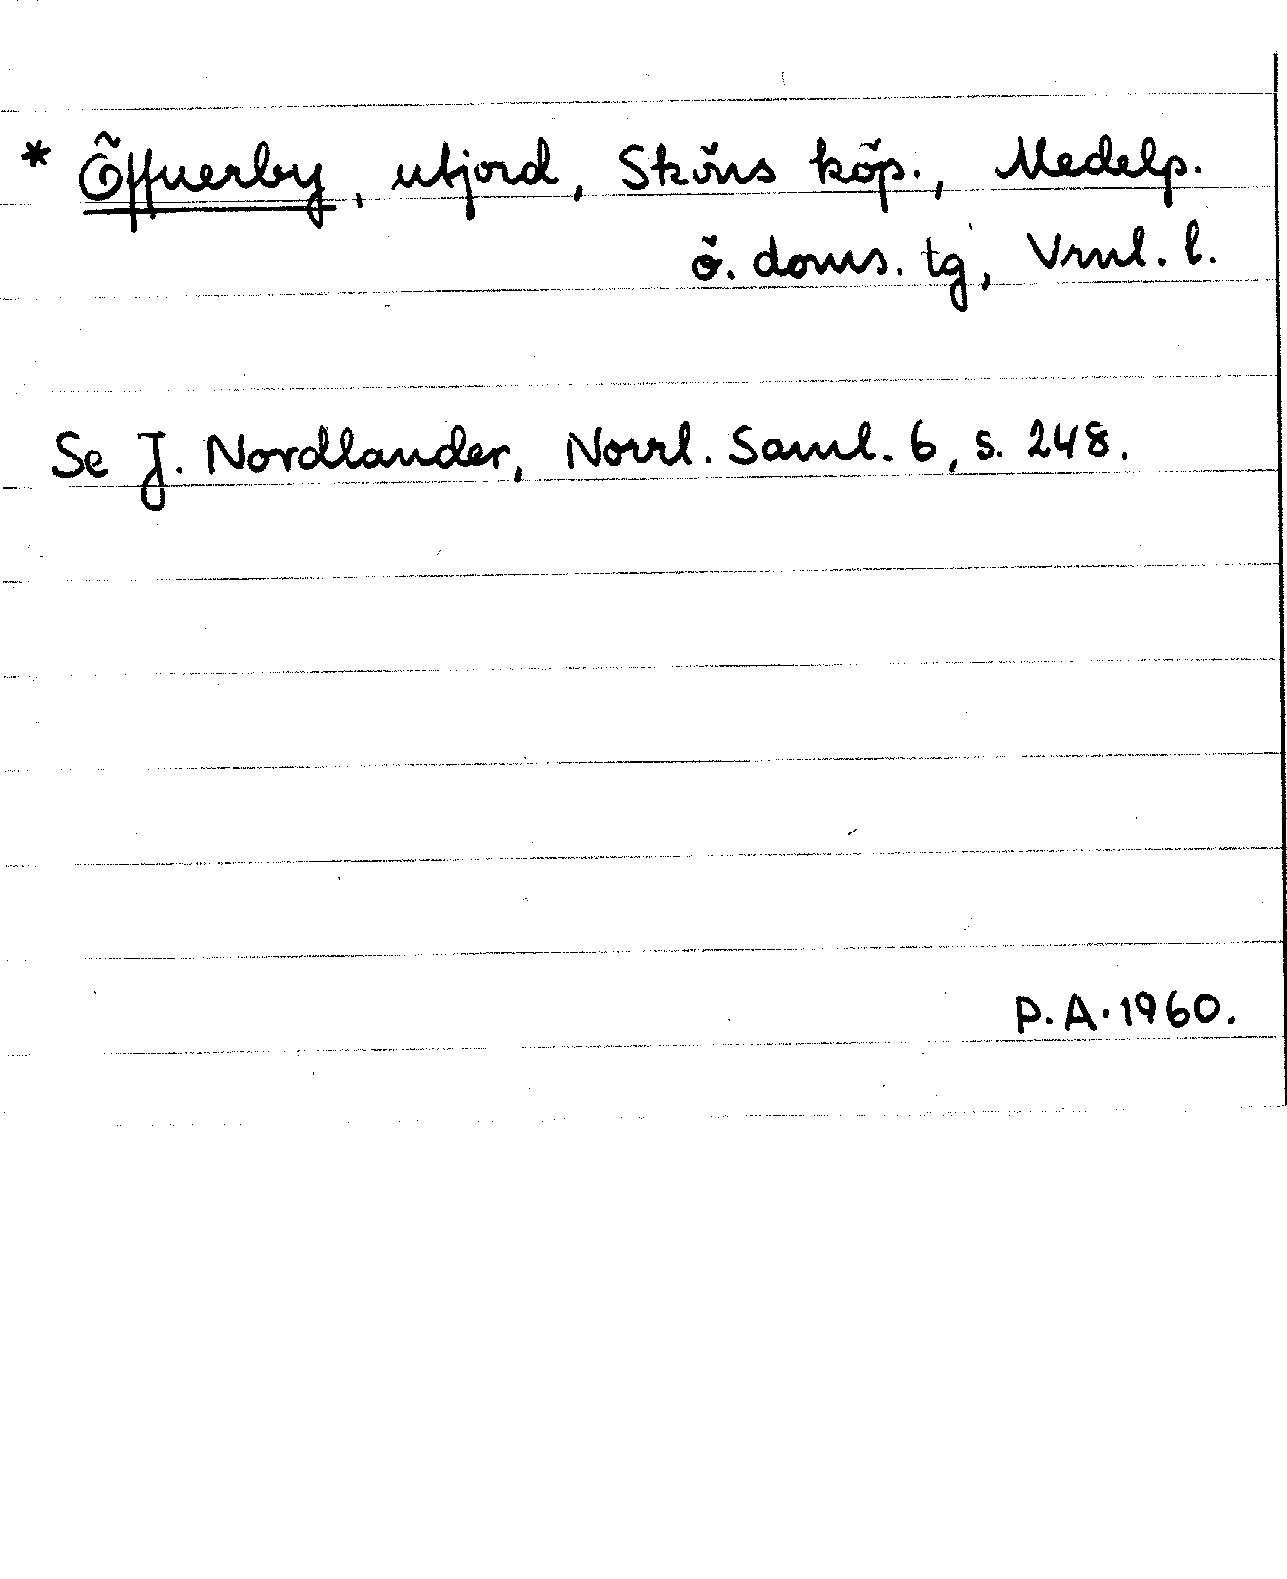 * Öffuerby, utjord, Sköns köp., Medelp.
ö. doms. tg, Vrnl. l.
Se J. Nordlander, Norrl. Saml. 6, s. 248.
P.A. 1960.